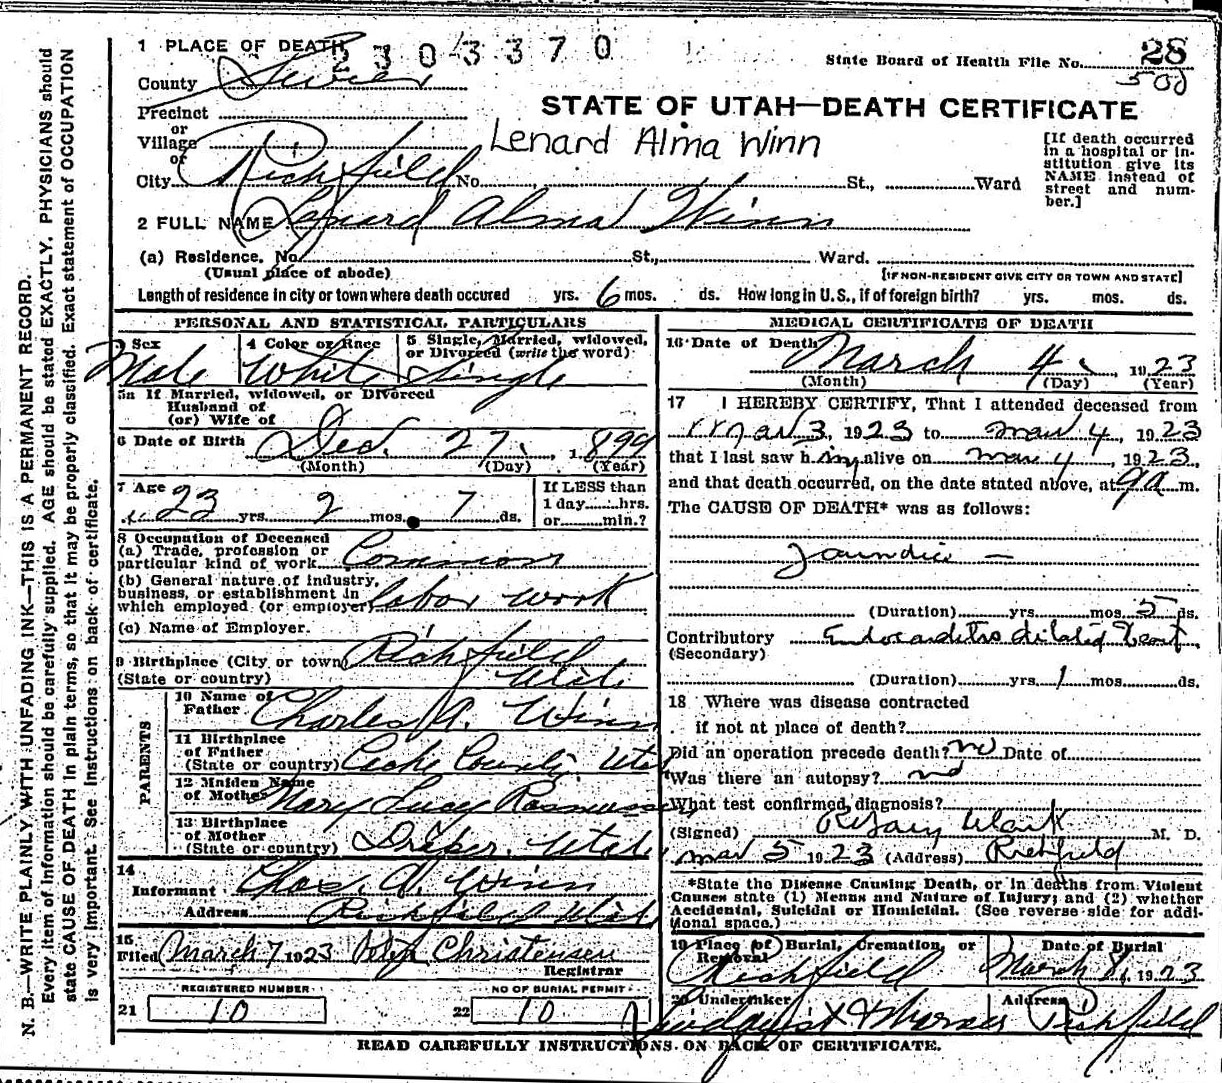 1 PLACE OF DEATH 2303370
State Board of Health File No. 28
500
County Sevier
STATE OF UTAH—DEATH CERTIFICATE
Precinct
or
Village
Lenard Alma Winn
or
City Richfield No. St., Ward
[If death occurred
in a hospital or in-
stitution give its
NAME instead of
street and num-
ber.]
2 FULL NAME Lenard Alma Winn
(a) Residence. No. St., Ward.
(Usual place of abode) [IF NON-RESIDENT GIVE CITY OR TOWN AND STATE]
Length of residence in city or town where death occured yrs. 6 mos. ds. How long in U.S., if of foreign birth? yrs. mos. ds.
PERSONAL AND STATISTICAL PARTICULARS
3 Sex Male
4 Color or Race White
5 Single, Married, widowed,
or Divorced (write the word) Single
5a If Married, widowed, or Divorced
Husband of
(or) Wife of
6 Date of Birth Dec. 27, 1899
(Month) (Day) (Year)
7 Age 23 yrs. 2 mos. 7 ds.
If LESS than
1 day......hrs.
or......min.?
8 Occupation of Deceased
(a) Trade, profession or
particular kind of work Common
(b) General nature of industry,
business, or establishment in
which employed (or employer) labor work
(c) Name of Employer.
9 Birthplace (City or town) Richfield
(State or country) Utah
PARENTS
10 Name of
Father Charles A. Winn
11 Birthplace
of Father
(State or country) Cache County, Utah
12 Maiden Name
of Mother Mary Lucy Rasmussen
13 Birthplace
of Mother
(State or country) Draper, Utah
14
Informant Chas. A. Winn
Address Richfield Utah
15
Filed March 7 1923 Christensen
Registrar
REGISTERED NUMBER
21 10
NO OF BURIAL PERMIT
22 10
MEDICAL CERTIFICATE OF DEATH
16 Date of Death March 4, 1923
(Month) (Day) (Year)
17 I HEREBY CERTIFY, That I attended deceased from
Mar 3, 1923 to Mar 4, 1923
that I last saw him alive on Mar 4, 1923,
and that death occurred, on the date stated above, at 9 a m.
The CAUSE OF DEATH* was as follows:
Jaundice —
(Duration) yrs. mos. 5 ds.
Contributory Endocarditis dilated heart
(Secondary)
(Duration) yrs. 1 mos. ds.
18 Where was disease contracted
if not at place of death?
Did an operation precede death? no Date of
Was there an autopsy? no
What test confirmed diagnosis?
(Signed) M. D.
Mar 5 1923 (Address) Richfield
*State the Disease Causing Death, or in deaths from Violent
Causes state (1) Means and Nature of Injury; and (2) whether
Accidental, Suicidal or Homicidal. (See reverse side for addi-
tional space.)
19 Place of Burial, Cremation, or
Removal Richfield
Date of Burial
March 8, 1923
20 Undertaker
Address Richfield
READ CAREFULLY INSTRUCTIONS ON BACK OF CERTIFICATE.
N. B.—WRITE PLAINLY WITH UNFADING INK—THIS IS A PERMANENT RECORD.
Every item of information should be carefully supplied. AGE should be stated EXACTLY. PHYSICIANS should
state CAUSE OF DEATH in plain terms, so that it may be properly classified. Exact statement of OCCUPATION
is very important. See instructions on back of certificate.